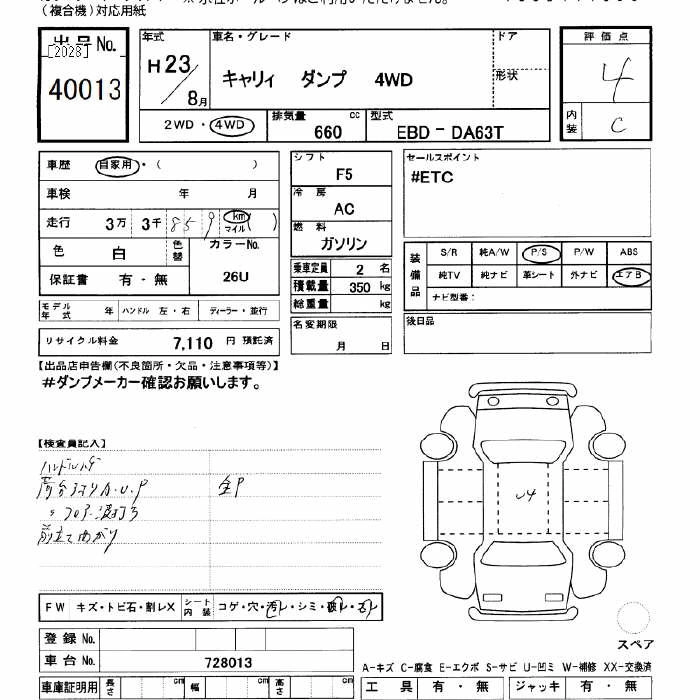 （複合機）対応用紙
出品No.
[2028]
40013
年式
H23/8月
車名・グレード
キャリィ ダンプ 4WD
ドア
形状
評価点
4
内装
C
2WD・4WD
排気量 cc
660
型式
EBD - DA63T
車歴 自家用・（ ）
車検 年 月
走行 3万 3千 859 km マイル ( )
色 白 色替 カラーNo.
26U
保証書 有・無
モデル年式 年 ハンドル 左・右 ディーラー・並行
リサイクル料金 7,110 円 預託済
シフト
F5
冷房
AC
燃料
ガソリン
乗車定員 2 名
積載量 350 kg
総重量 kg
名変期限
月 日
セールスポイント
#ETC
装備品
S/R 純A/W P/S P/W ABS
純TV 純ナビ 革シート 外ナビ エアB
ナビ型番：
後日品
【出品店申告欄(不良箇所・欠品・注意事項等)】
#ダンプメーカー確認お願いします。
【検査員記入】
A・U・P
全P
U4
FW キズ・トビ石・割レX シート内装 コゲ・穴・汚レ・シミ・破レ・スレ
登録No.
車台No. 728013
車庫証明用 長さ cm 幅 cm 高さ cm
スペア
A-キズ C-腐食 E-エクボ S-サビ U-凹ミ W-補修 XX-交換済
工具 有・無 ジャッキ 有・無